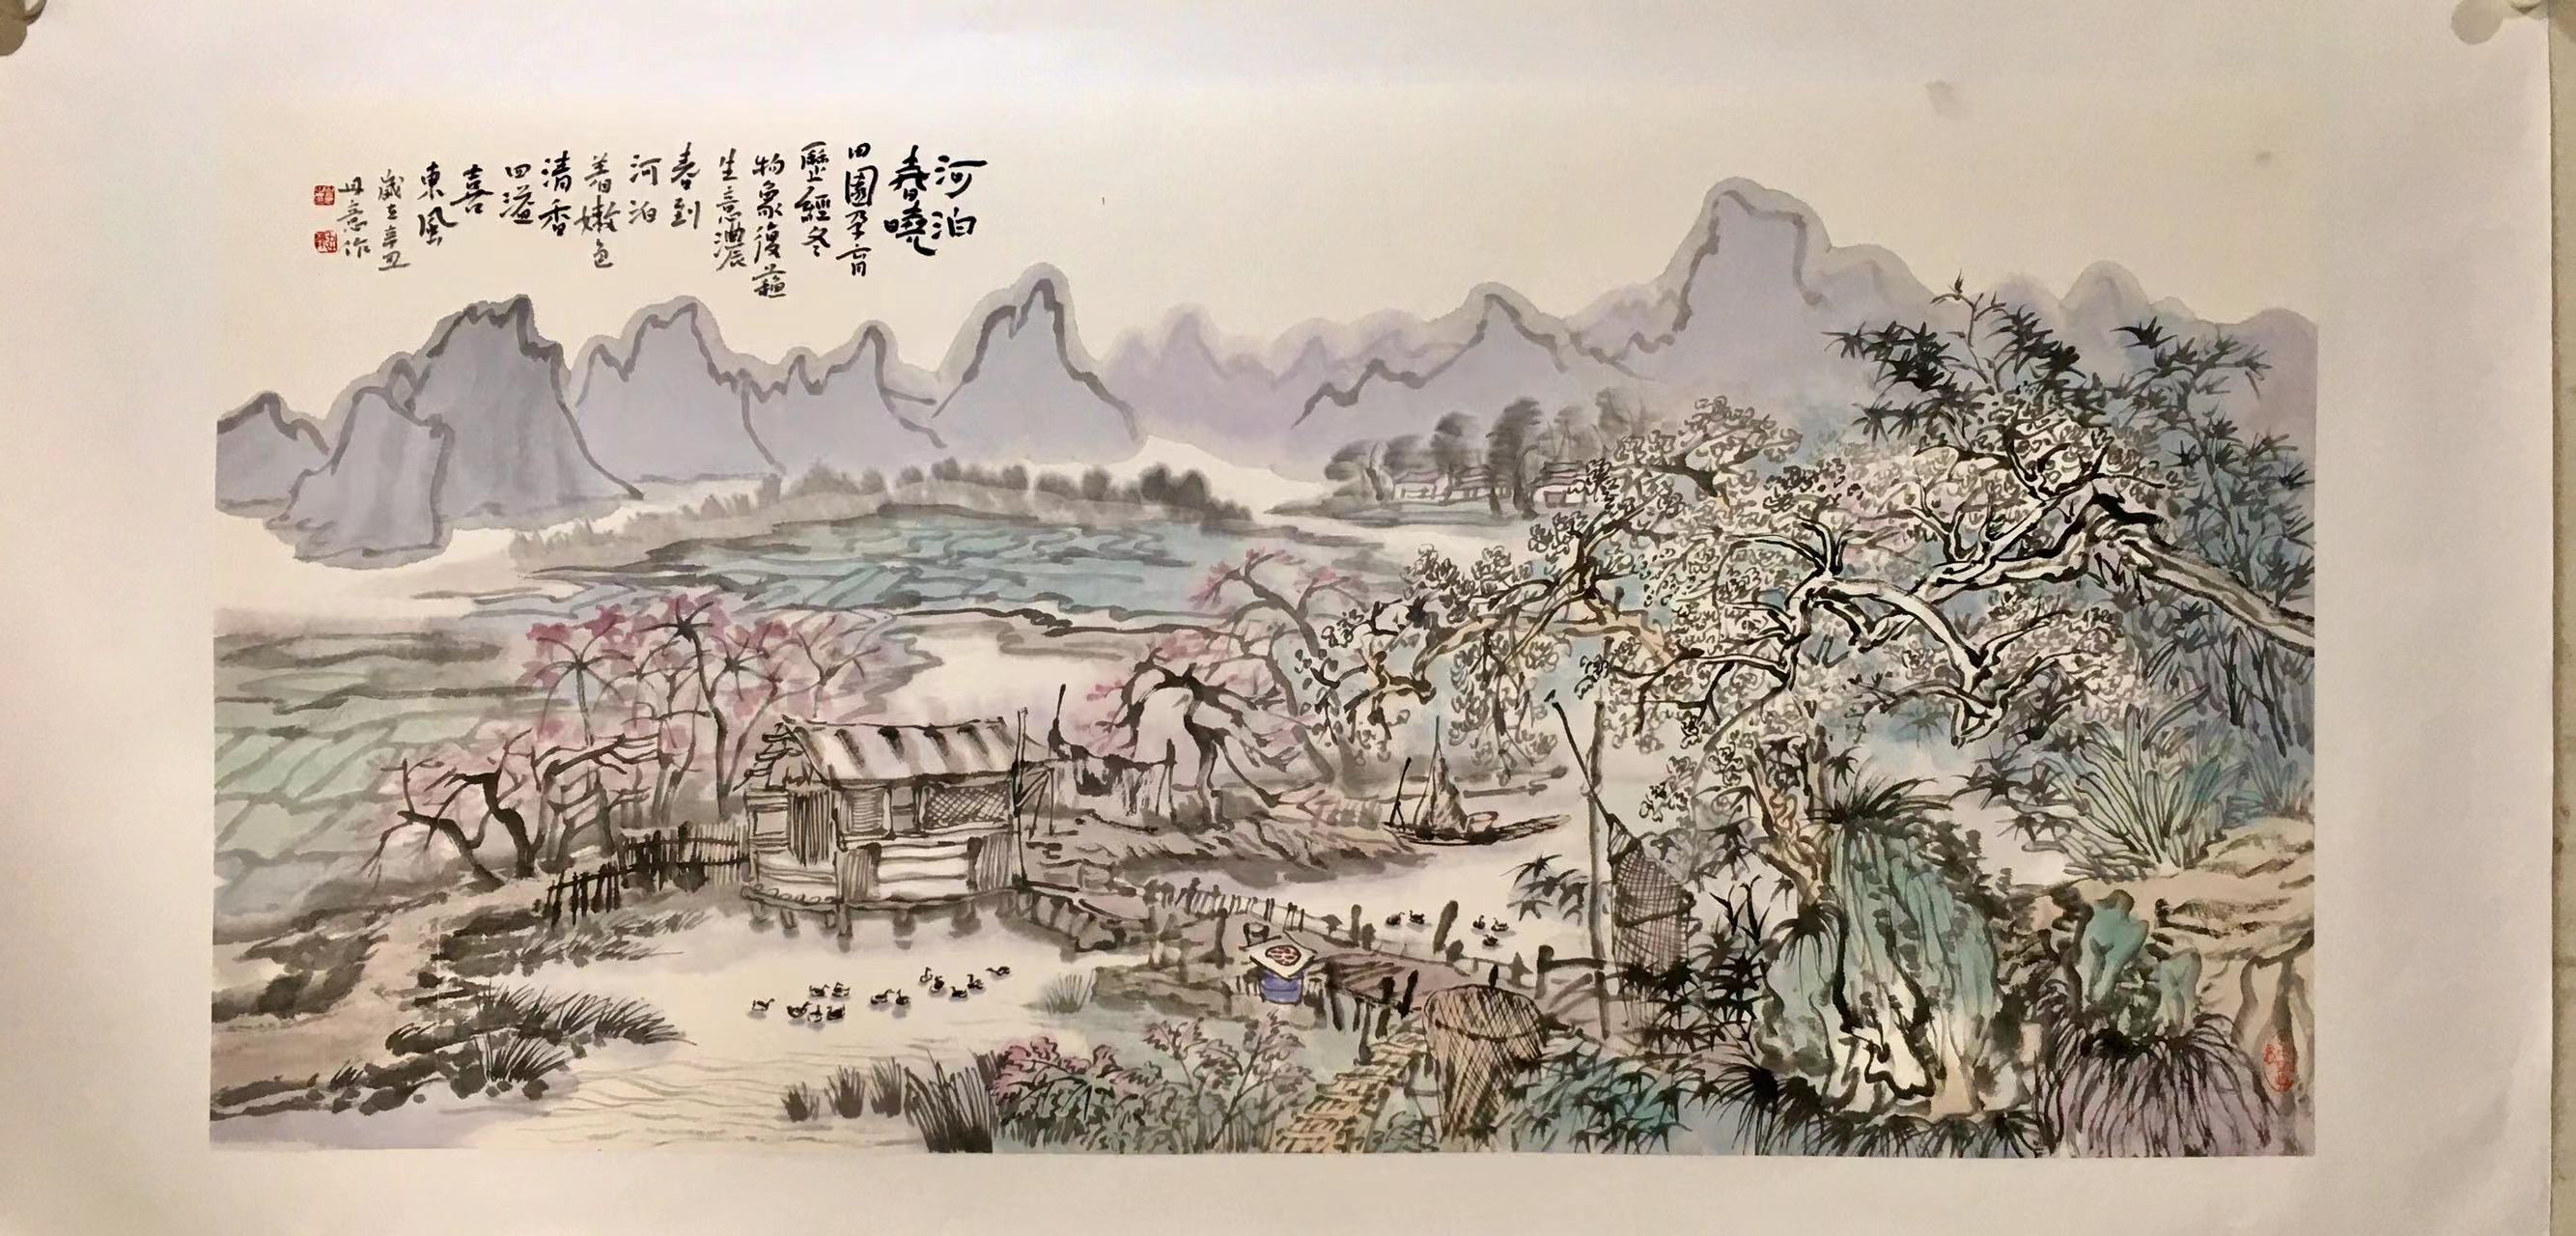 河泊
春曉
田園孕育
歷經冬
物象復蘇
生意濃
春到
河泊
著嫩色
清香
四溢
喜
東風
歲在辛丑
丹意作